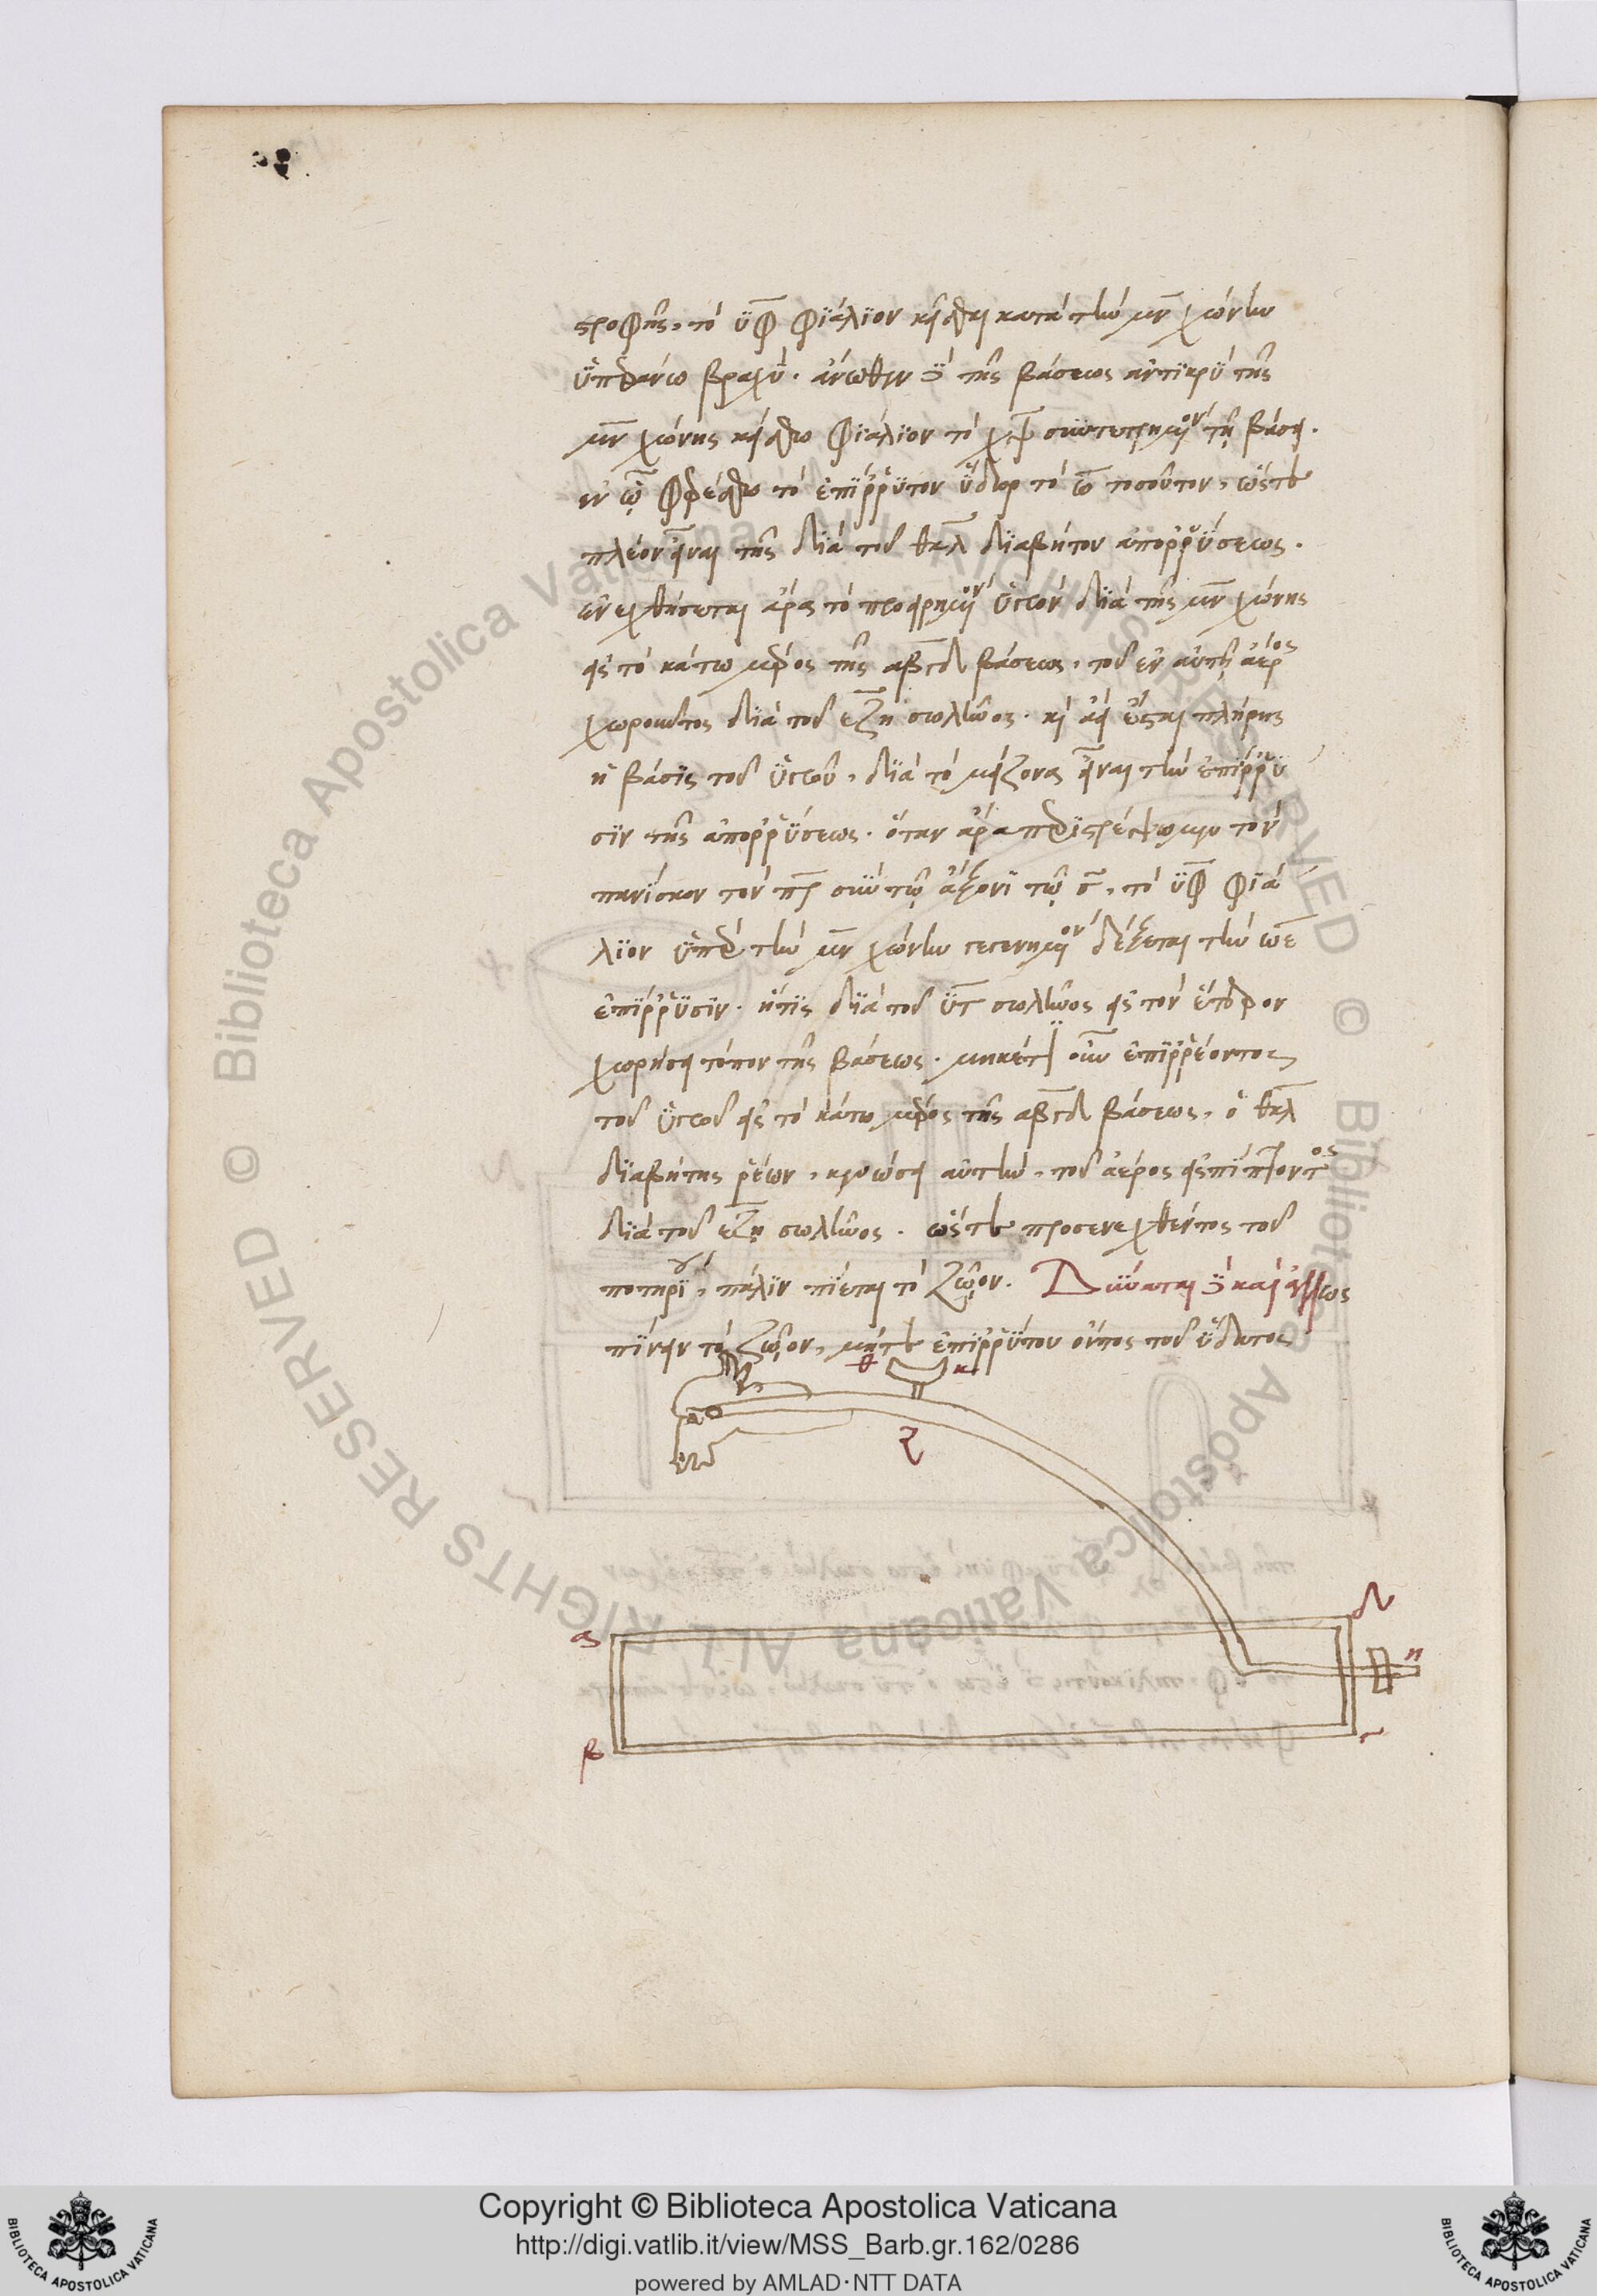 στροφῆς, τὸ ὑφ φιάλιον κεῖσθαι κατὰ τὴν μν χώνην
ὑπεράνω βραχύ. ἄνωθεν δὲ τῆς βάσεως ἀντικρὺ τῆς
μν χώνης κείσθω φιάλιον τὸ χψ συντετρημένον τῇ βάσει.
ἐν ᾧ φερέσθω τὸ ἐπίρρυτον ὕδωρ τὸ ω τοσοῦτον, ὥστε
πλέον εἶναι τῆς διὰ τοῦ θκλ διαβήτου ἀπορρύσεως.
ἐνεχθήσεται ἄρα τὸ προειρημένον ὑγρὸν διὰ τῆς μν χώνης
εἰς τὸ κάτω μέρος τῆς αβγδ βάσεως, τοῦ ἐν αὐτῇ ἀέρος
χωροῦντος διὰ τοῦ εζη σωλῆνος. καὶ ἀεὶ ἔσται πλήρης
ἡ βάσις τοῦ ὑγροῦ, διὰ τὸ μείζονα εἶναι τὴν ἐπίρρυ
σιν τῆς ἀπορρύσεως. ὅταν ἄρα περιστρέψωμεν τὸν
πανίσκον τὸν πρ σὺν τῷ ἄξονι τῷ σ, τὸ ὑφ φιά
λιον ὑπὲρ τὴν μν χώνην γεγενημένον δέξεται τὴν ωε
ἐπίρρυσιν. ἥτις διὰ τοῦ υτ σωλῆνος εἰς τὸν ἕτερον
χωρήσει τόπον τῆς βάσεως. μηκέτι οὖν ἐπιρρέοντος
τοῦ ὑγροῦ εἰς τὸ κάτω μέρος τῆς αβγδ βάσεως, ὁ θκλ
διαβήτης ῥέων, κενώσει αὐτὴν, τοῦ ἀέρος εἰσπίπτοντος
διὰ τοῦ εζη σωλῆνος. ὥστε προσενεχθέντος τοῦ
ποτηρίου, πάλιν πίεται τὸ ζῶον. Δύναται δὲ καὶ ἄλλως
πίνειν τὸ ζῶον, μήτε ἐπιρρύτου ὄντος τοῦ ὕδατος
θ κ
ζ
α δ
η
β γ
Copyright © Biblioteca Apostolica Vaticana
http://digi.vatlib.it/view/MSS_Barb.gr.162/0286
powered by AMLAD·NTT DATA